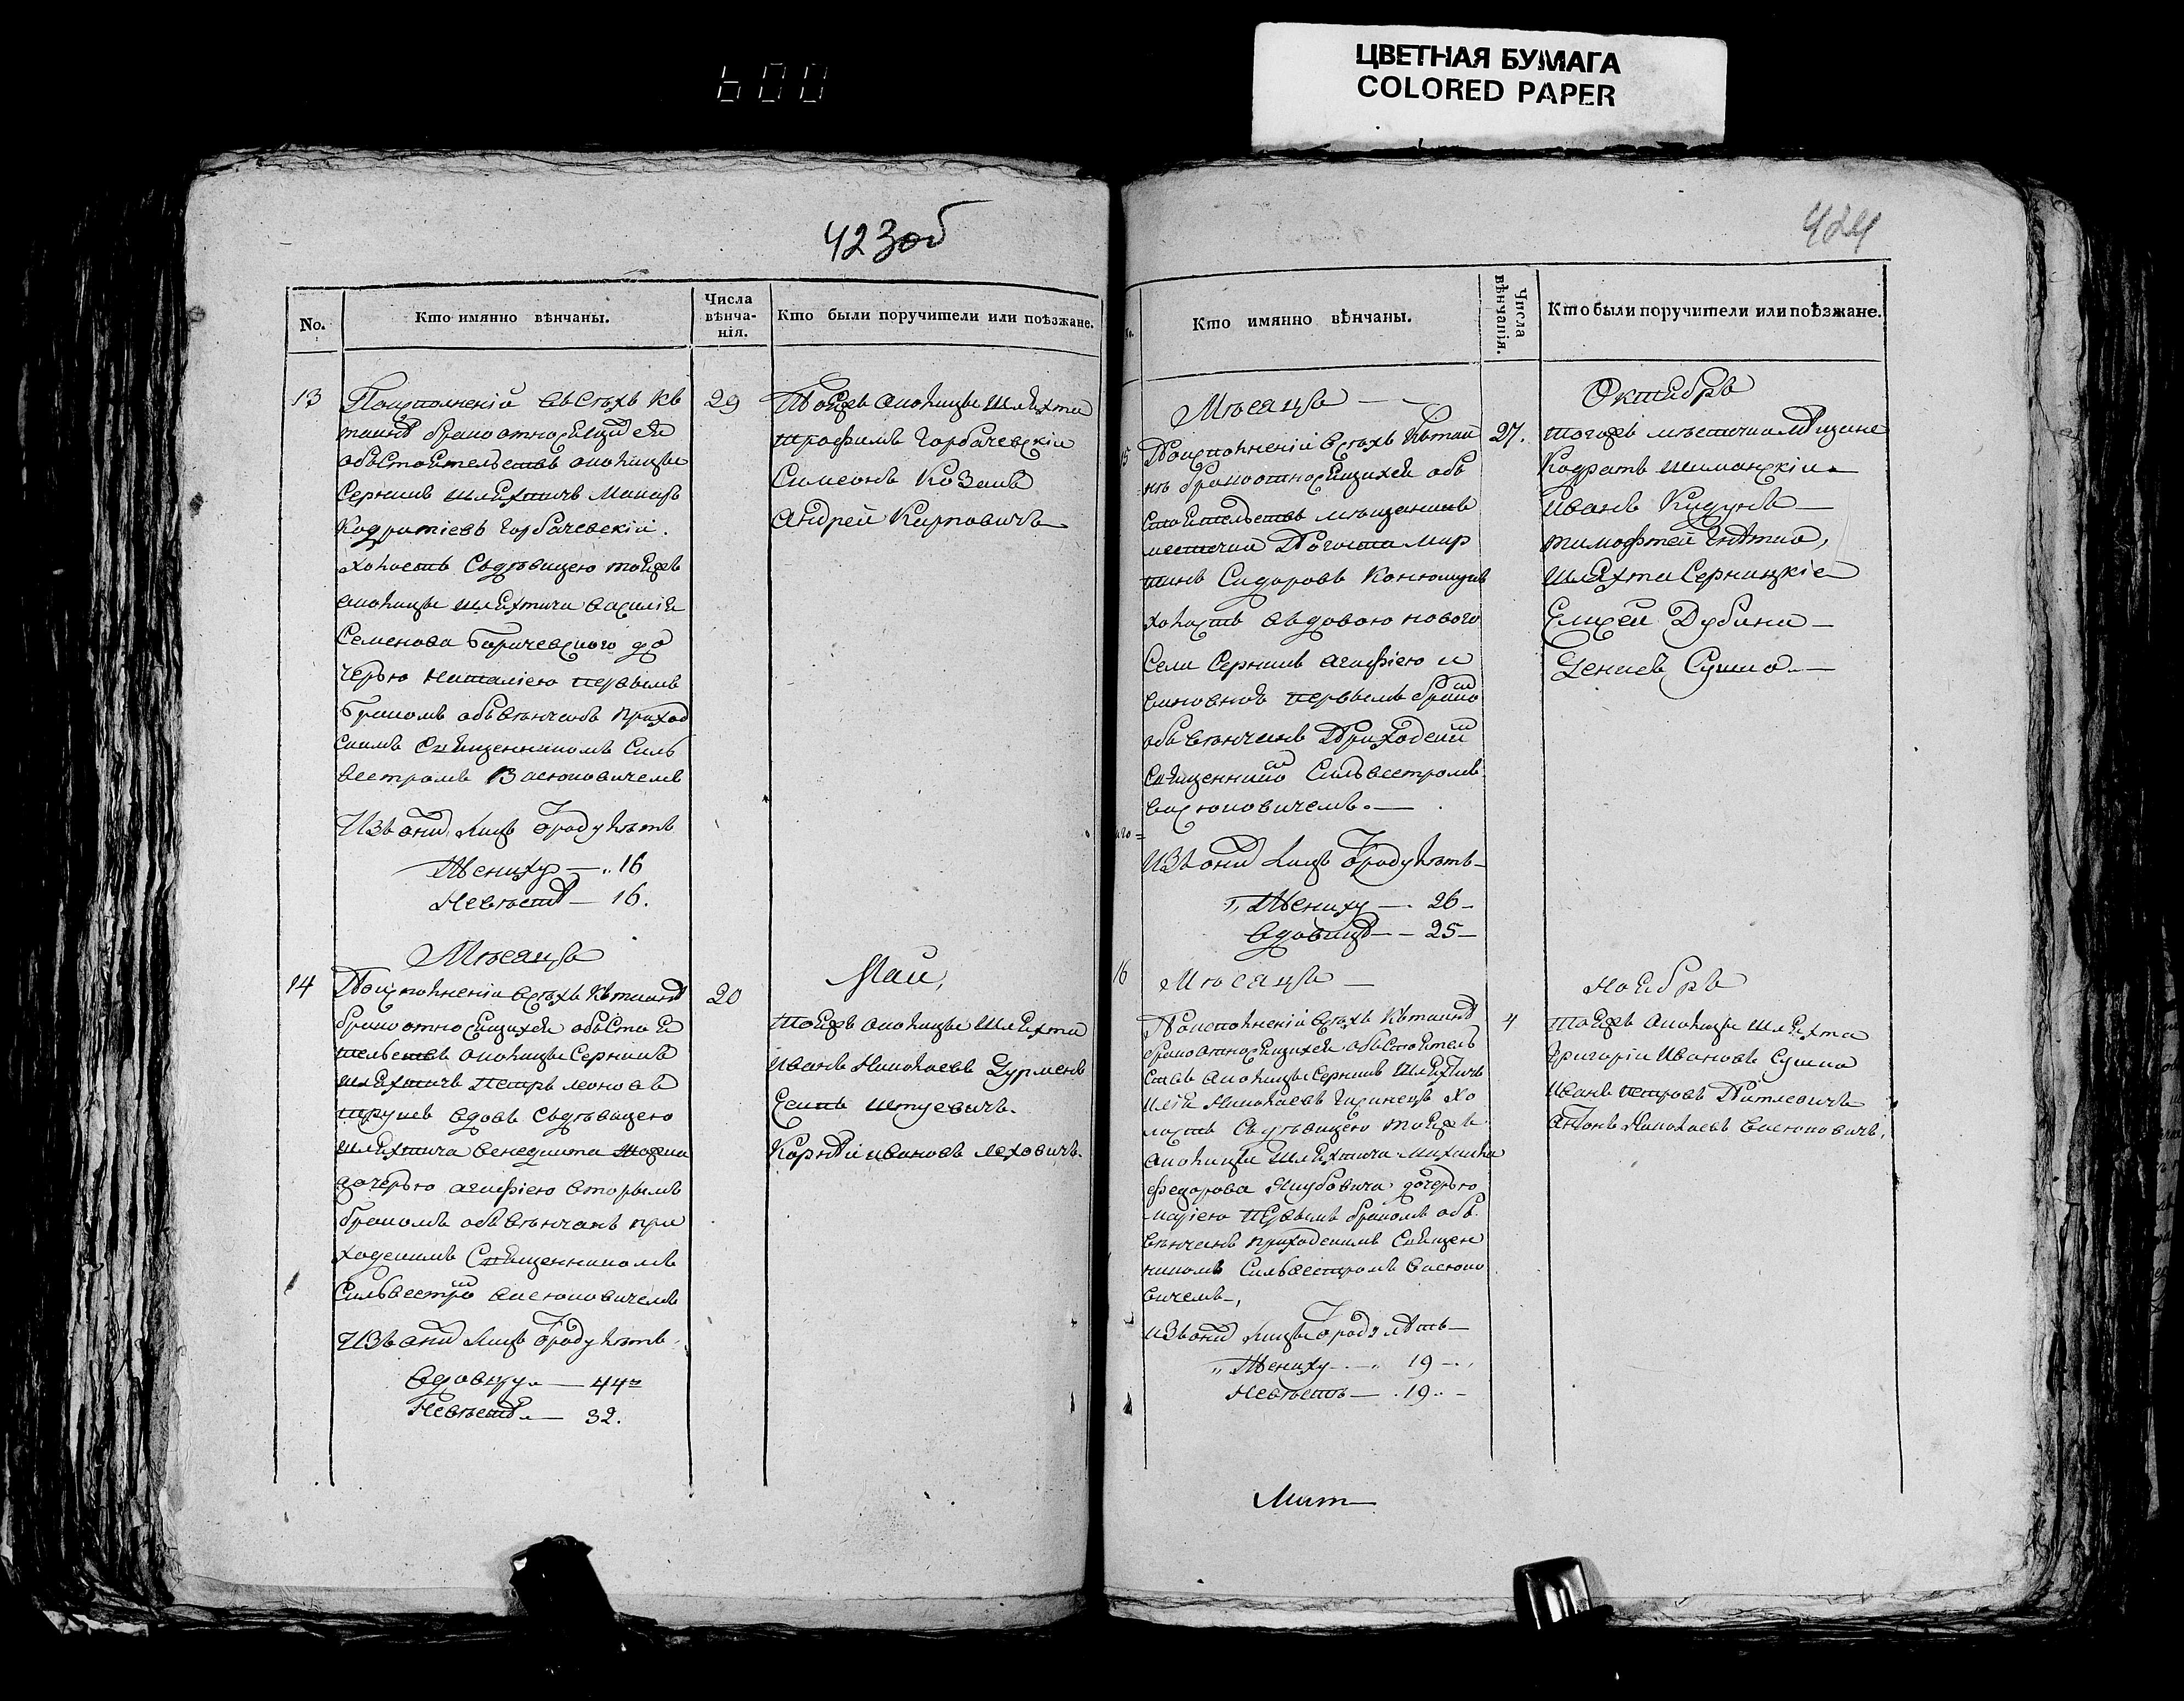 600
ЦВЕТНАЯ БУМАГА
COLORED PAPER
423 об
No.
Кто имянно вѣнчаны.
Числа вѣнча-нія.
Кто были поручители или поѣзжане.
13
Поисполненіи въсѣхъ къ
таинѣ брако относящихся
обьстоятельствъ околицы
Серникъ шляхтичъ Макаръ
Кодратіевъ Горбачевскій.
холостъ съ дѣвицею тояжъ
околицы шляхтича василія
Семенова Боричевского до
черью наталіею первымъ
бракомъ обьвѣнчанъ приход
скимъ священникомъ Силь
вестромъ Васюковичемъ
Изъ онихъ лицъ отроду лѣтъ
Жениху — 16
Невѣстѣ — 16.
29
Тояжъ околицы шляхта
трофимъ горбачевскій
Симеонъ Козакъ
Андрей Карповичъ
Мѣсяца
Маи,
14
Поисполненіи всѣхъ къ таинѣ
брако относящихся обьстоя
тельствъ околицы Серникъ
шляхтичъ петръ леоновъ
вдовъ съ дѣвицею
шляхтича венедикта
дочерью агафіею вторымъ
бракомъ обьвѣнчанъ при
ходскимъ священникомъ
Сильвестромъ васюковичемъ
Изъ онихъ лицъ отроду лѣтъ
Вдовцу — 44
Невѣстѣ — 32.
20
тояжъ околицы шляхта
иванъ Николаевъ
Корнѣй ивановъ леховичъ.
424
Кто имянно вѣнчаны.
Числа вѣнчанія.
Кто были поручители или поѣзжане.
Мѣсяца —
Октября
15
Поисполненіи всѣхъ къ таи
нѣ брако относящихся объ
стоятельствъ мѣщанинъ
местечка Погоста мар
тинъ Сидоровъ
холостъ съ вдовою нового
Села Серникъ агафіею
первымъ бракомъ
объвѣнчанъ Приходскимъ
священникомъ Сильвестромъ
васюковичемъ. —
Изъ онихъ лицъ отроду лѣтъ —
Жениху — 26 —
Вдовицѣ — 25 —
27.
тогожъ мѣстечка мѣщане
Кодратъ шиманскій
Иванъ
тимофтей
шляхта Серницкіе
Елисей Дубина —
Денисъ Сушко —
16
Мѣсяца —
Ноября
Поисполненіи всѣхъ къ таинѣ
брако относящихся обьстоятель
ствъ околицы Серникъ шляхтичъ
илія Николаевъ хо
лостъ съ дѣвицею тояжъ
околицы шляхтича михаила
федорова якубовича дочерью
маріею первымъ бракомъ объ
вѣнчанъ приходскимъ священ
никомъ Сильвестромъ васюко
вичемъ —,
изъ онихъ лицъ отроду лѣтъ —
Жениху — 19 —
Невѣстѣ — 19 —
4
тояжъ околицы шляхта
григорій Ивановъ Сушко
Иванъ петровъ
Антонъ Николаевъ васюковичъ.